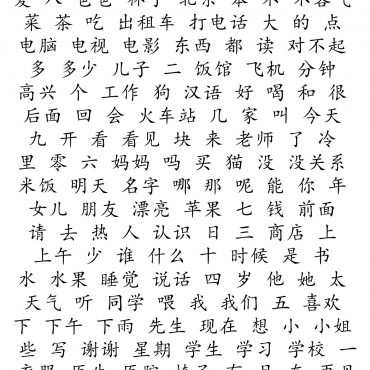 菜 茶 吃 出租车 打电话 大 的 点
电脑 电视 电影 东西 都 读 对不起
多 多少 儿子 二 饭馆 飞机 分钟
高兴 个 工作 狗 汉语 好 喝 和 很
后面 回 会 火车站 几 家 叫 今天
九 开 看 看见 块 来 老师 了 冷
里 零 六 妈妈 吗 买 猫 没 没关系
米饭 明天 名字 哪 那 呢 能 你 年
女儿 朋友 漂亮 苹果 七 钱 前面
请 去 热 人 认识 日 三 商店 上
上午 少 谁 什么 十 时候 是 书
水 水果 睡觉 说话 四 岁 他 她 太
天气 听 同学 喂 我 我们 五 喜欢
下 下午 下雨 先生 现在 想 小 小姐
些 写 谢谢 星期 学生 学习 学校 一